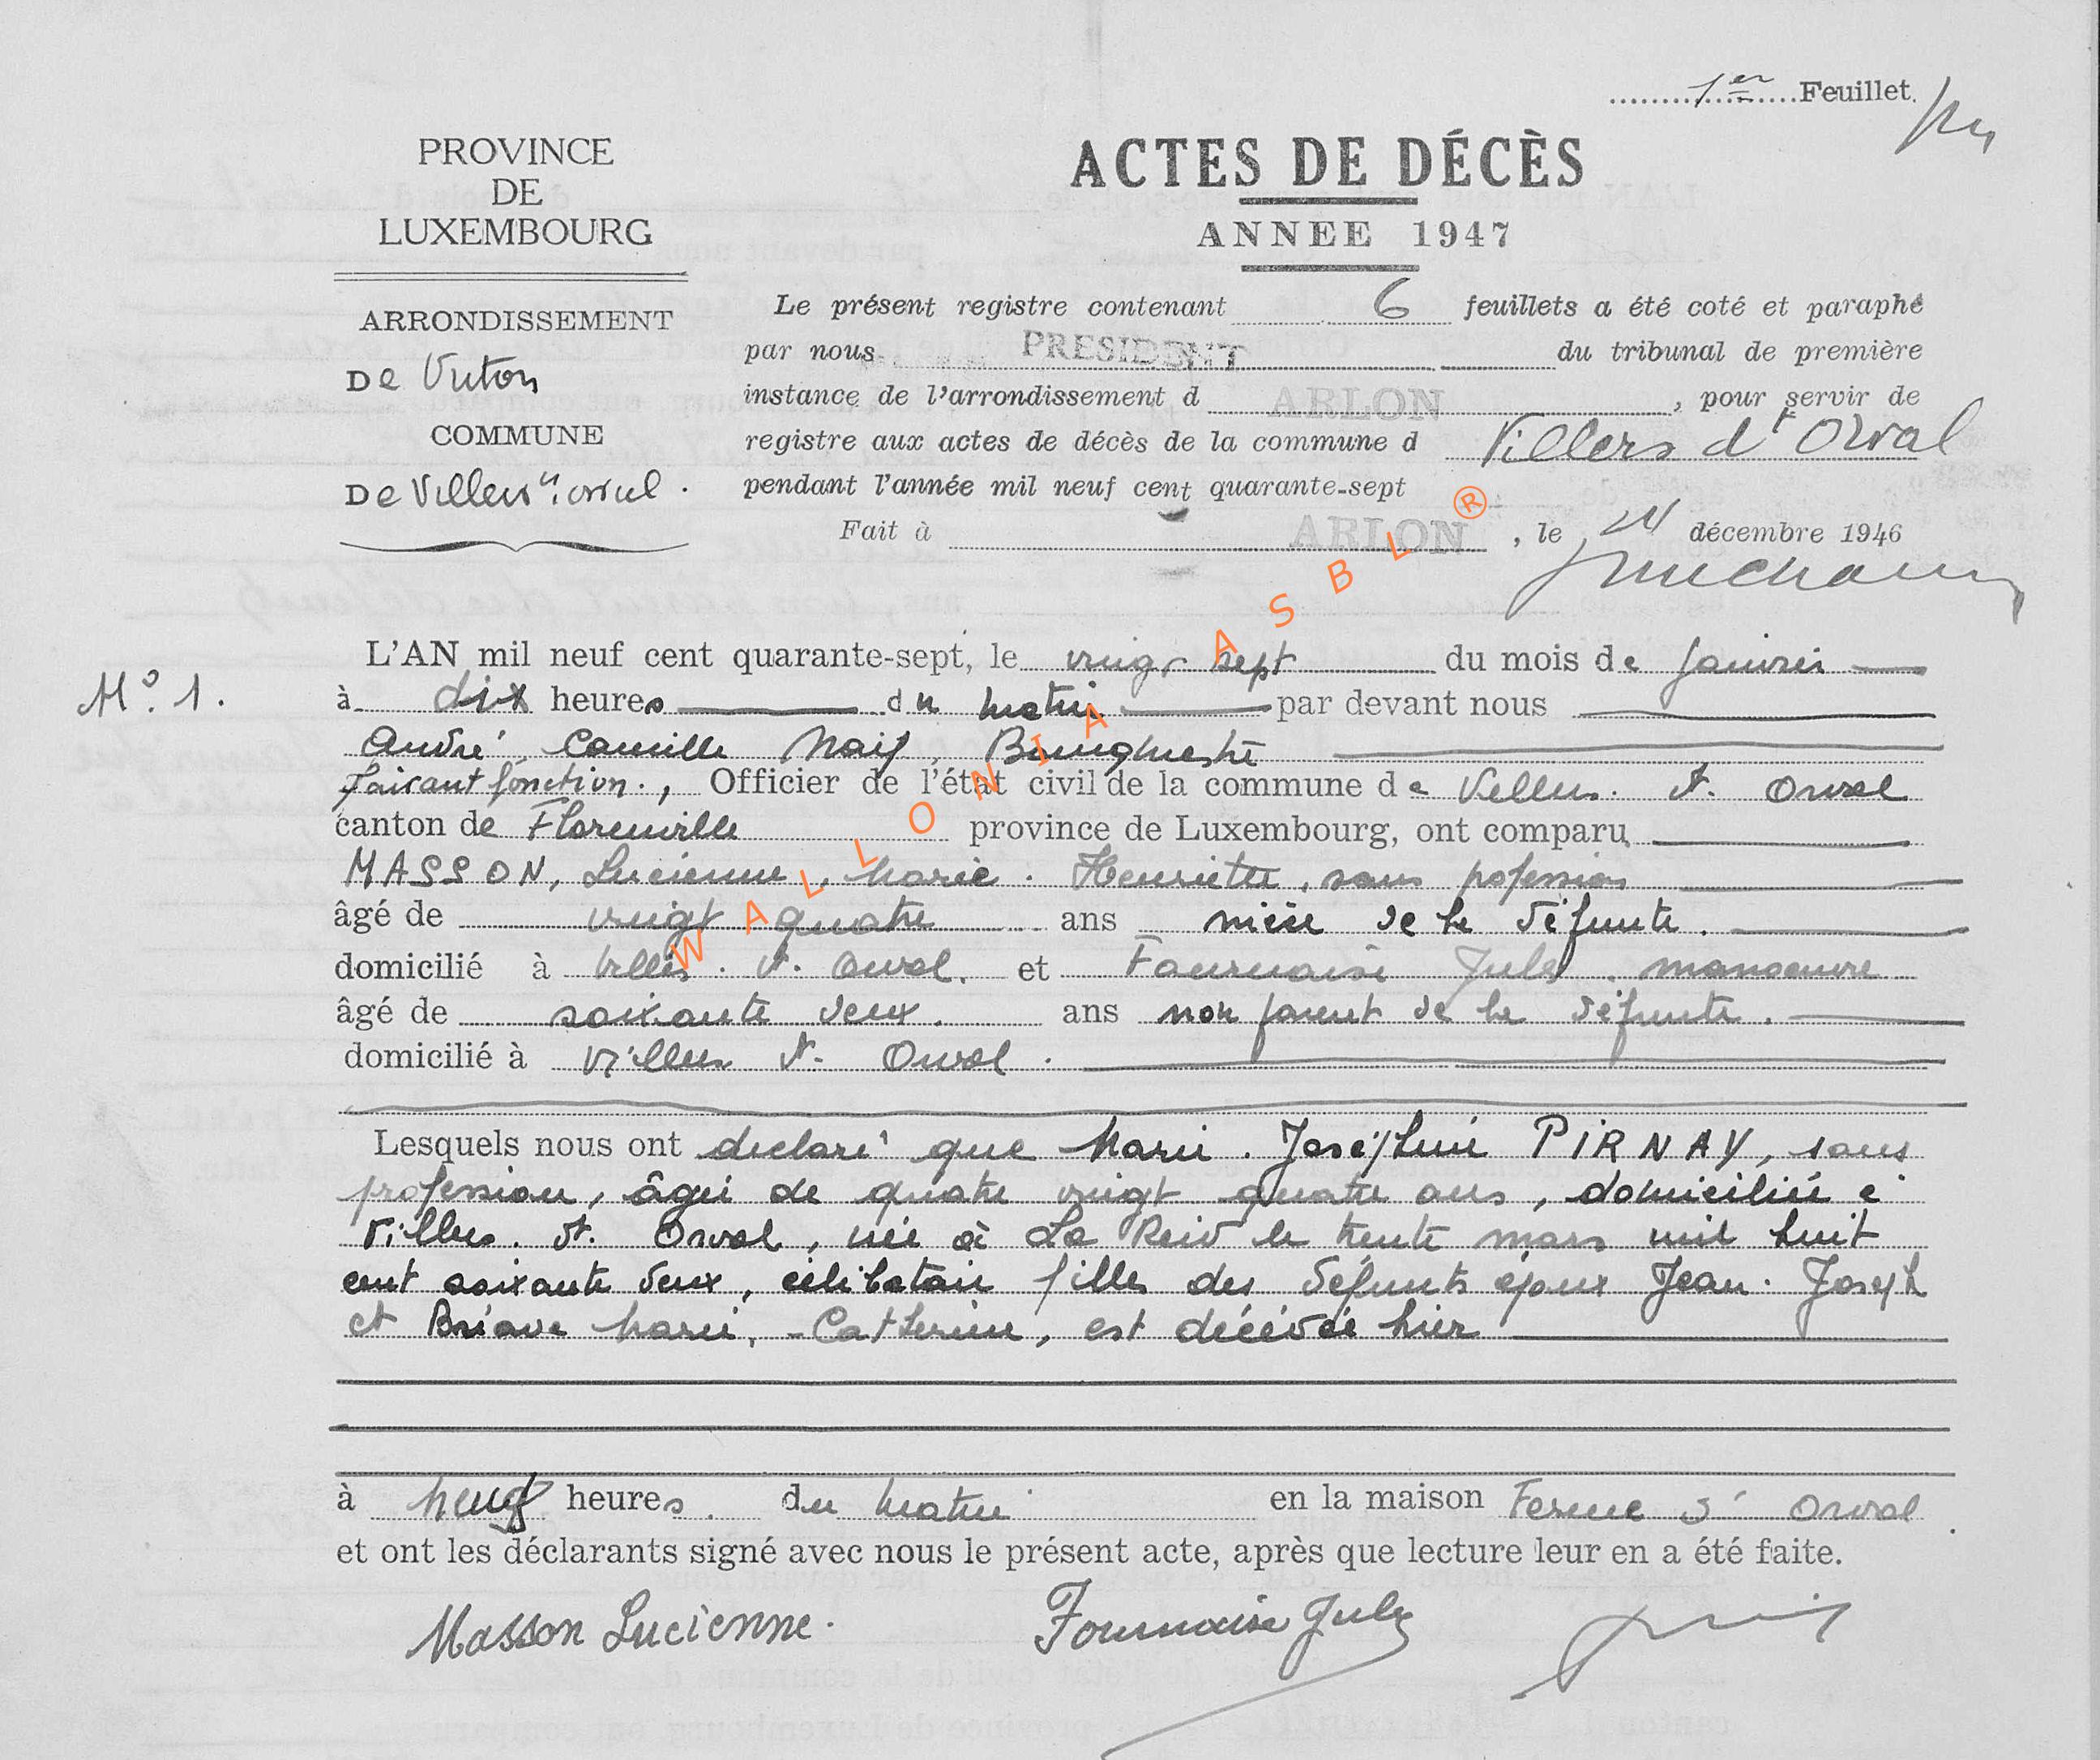 1er Feuillet.
PROVINCE
DE
LUXEMBOURG
ARRONDISSEMENT
De Virton
COMMUNE
De Villers dt orval.
ACTES DE DÉCÈS
ANNEE 1947
Le présent registre contenant 6 feuillets a été coté et paraphé
par nous PRESIDENT du tribunal de première
instance de l'arrondissement d ARLON, pour servir de
registre aux actes de décès de la commune d Villers dt Orval
pendant l'année mil neuf cent quarante-sept
Fait à ARLON, le décembre 1946
WALLONIA ASBL ®
No. 1.
L'AN mil neuf cent quarante-sept, le vingt sept du mois de Janvier
à dix heures du matin par devant nous
André Camille Naif, Bourgmestre
faisant fonction., Officier de l'état civil de la commune de Villers. dt. Orval
canton de Florenville province de Luxembourg, ont comparu
MASSON, Lucienne, Marie. Henriette, sans profession
âgé de vingt quatre ans nièce de la défunte.
domicilié à Villers. dt. Orval. et Fournaise Jules. manoeuvre
âgé de soixante deux. ans non parent de la défunte.
domicilié à Villers dt. Orval.
Lesquels nous ont declaré que Marie. Joséphine PIRNAY, sans
profession, âgée de quatre vingt quatre ans, domiciliée à
Villers. dt. Orval, née à La Reid le trente mars mil huit
cent soixante deux, célibataire fille des défunts époux Jean. Joseph
et Briave Marie,-Catherine, est décédée hier
à neuf heures. du matin en la maison Ferme d' Orval.
et ont les déclarants signé avec nous le présent acte, après que lecture leur en a été faite.
Masson Lucienne. Fournaise Jules